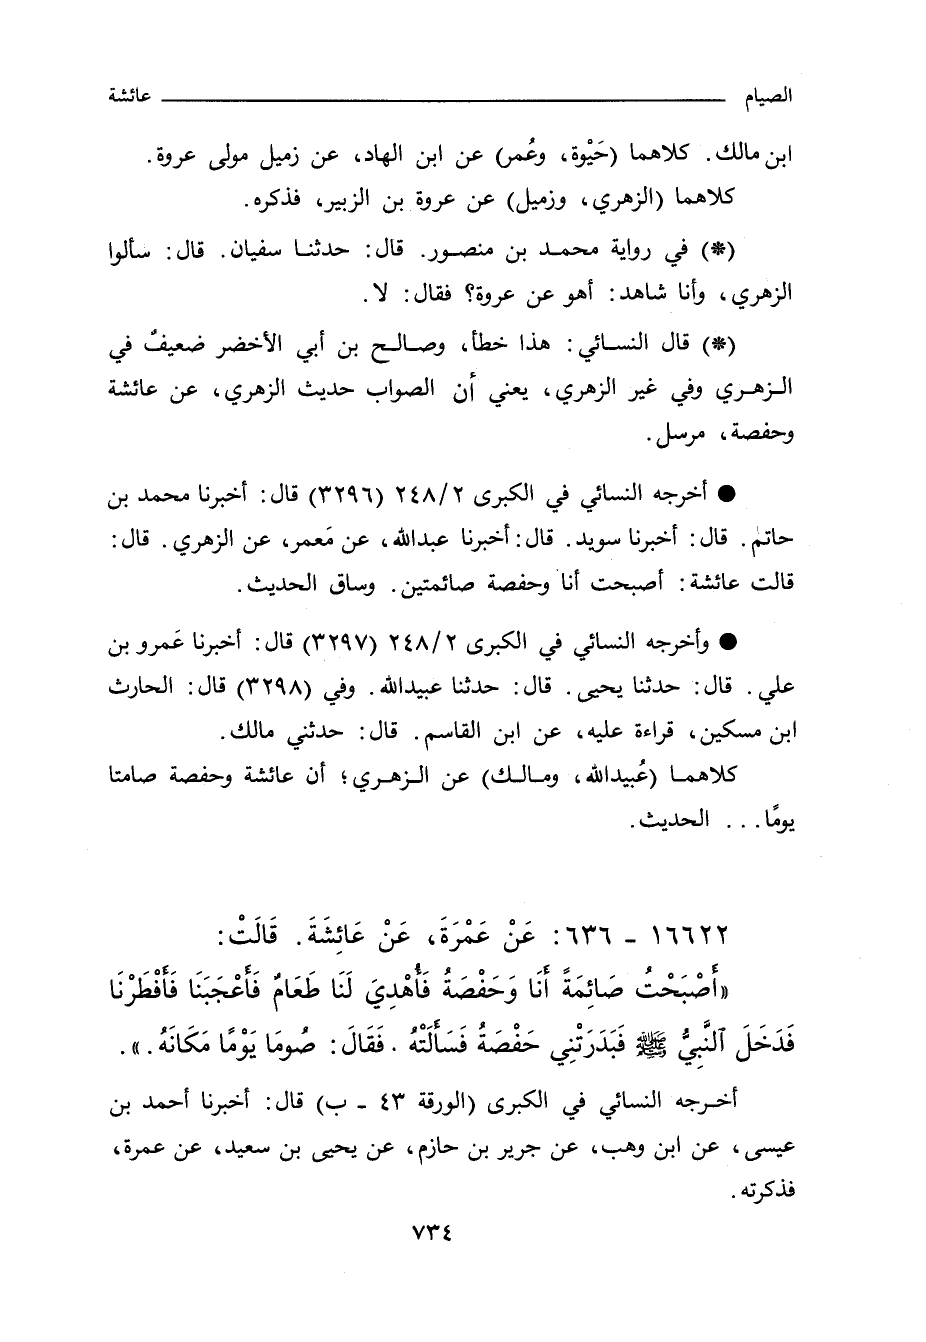 الصيام ــــــــــــــــــــ عائشة
ابن مالك. كلاهما (حَيْوة، وعُمر) عن ابن الهاد، عن زميل مولى عروة.
كلاهما (الزهري، وزميل) عن عروة بن الزبير، فذكره.
(*) في رواية محمد بن منصور. قال: حدثنا سفيان. قال: سألوا
الزهري، وأنا شاهد: أهو عن عروة؟ فقال: لا.
(*) قال النسائي: هذا خطأ، وصالح بن أبي الأخضر ضعيفٌ في
الزهري وفي غير الزهري، يعني أن الصواب حديث الزهري، عن عائشة
وحفصة، مرسل.
● أخرجه النسائي في الكبرى ٢/ ٢٤٨ (٣٢٩٦) قال: أخبرنا محمد بن
حاتم. قال: أخبرنا سويد. قال: أخبرنا عبدالله، عن مَعمر، عن الزهري. قال:
قالت عائشة: أصبحت أنا وحفصة صائمتين. وساق الحديث.
● وأخرجه النسائي في الكبرى ٢/ ٢٤٨ (٣٢٩٧) قال: أخبرنا عَمرو بن
علي. قال: حدثنا يحيى. قال: حدثنا عبيدالله. وفي (٣٢٩٨) قال: الحارث
ابن مسكين، قراءة عليه، عن ابن القاسم. قال: حدثني مالك.
كلاهما (عُبيدالله، ومالك) عن الزهري؛ أن عائشة وحفصة صامتا
يومًا... الحديث.
١٦٦٢٢ - ٦٣٦: عَنْ عَمْرَةَ، عَنْ عَائِشَةَ. قَالَتْ:
«أَصْبَحْتُ صَائِمَةً أَنَا وَحَفْصَةُ فَأُهْدِيَ لَنَا طَعَامٌ فَأَعْجَبَنَا فَأَفْطَرْنَا
فَدَخَلَ ٱلنَّبِيُّ ﷺ فَبَدَرَتْنِي حَفْصَةُ فَسَأَلَتْهُ. فَقَالَ: صُومَا يَوْمًا مَكَانَهُ.».
أخرجه النسائي في الكبرى (الورقة ٤٣ - ب) قال: أخبرنا أحمد بن
عيسى، عن ابن وهب، عن جرير بن حازم، عن يحيى بن سعيد، عن عمرة،
فذكرته.
٧٣٤